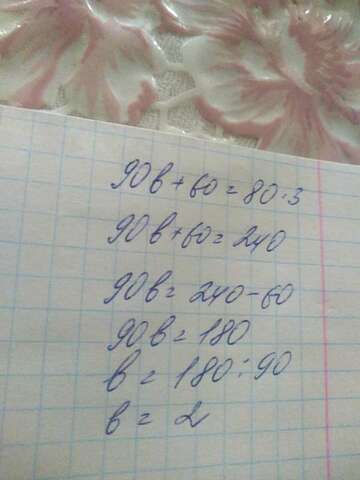 90в+60=80·3
90в+60=240
90в=240-60
90в=180
в=180:90
в=2